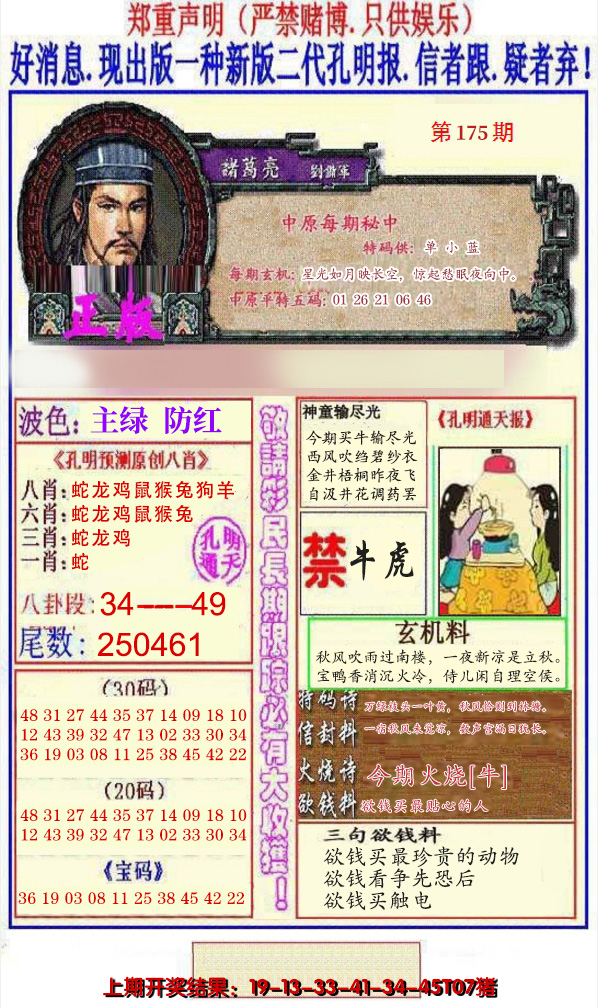 郑重声明（严禁赌博.只供娱乐）
好消息.现出版一种新版二代孔明报.信者跟.疑者弃!
第175期
諸葛亮 劉備軍
中原每期秘中
特码供: 单小蓝
每期玄机: 星光如月映长空，惊起愁眠夜向中。
中原平特五码: 01 26 21 06 46
正版
波色: 主绿 防红
《孔明预测原创八肖》
八肖: 蛇龙鸡鼠猴兔狗羊
六肖: 蛇龙鸡鼠猴兔
三肖: 蛇龙鸡
一肖: 蛇
孔明通天
八卦段: 34----49
尾数: 250461
(30码)
48 31 27 44 35 37 14 09 18 10
12 43 39 32 47 13 02 33 30 34
36 19 03 08 11 25 38 45 42 22
(20码)
48 31 27 44 35 37 14 09 18 10
12 43 39 32 47 13 02 33 30 34
《宝码》
36 19 03 08 11 25 38 45 42 22
敬請彩民長期跟踪必有大收獲!
神童输尽光
今期买牛输尽光
西风吹绉碧纱衣
金井梧桐昨夜飞
自汲井花调药罢
《孔明通天报》
禁 牛虎
玄机料
秋风吹雨过南楼，一夜新凉是立秋。
宝鸭香消沉火冷，侍儿闲自理空侯。
特码诗 万绿枝头一叶黄，秋风恰测到林塘。
信封料 一宿秋风未觉凉，数声宫漏日犹长。
火烧诗 今期火烧[牛]
欲钱料 欲钱买最贴心的人
三句欲钱料
欲钱买最珍贵的动物
欲钱看争先恐后
欲钱买触电
上期开奖结果: 19-13-33-41-34-45T07猪